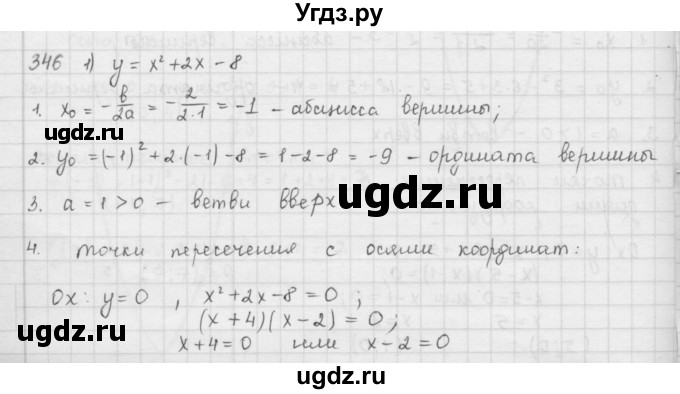 Угдз.ру
346 1) y = x² + 2x - 8
1. x₀ = -в/2a = -2/2·1 = -1 - абсцисса вершины;
2. y₀ = (-1)² + 2·(-1) - 8 = 1 - 2 - 8 = -9 - ордината вершины
3. a = 1 > 0 - ветви вверх
4. точки пересечения с осями координат:
Ox: y = 0, x² + 2x - 8 = 0;
(x + 4)(x - 2) = 0;
x + 4 = 0 или x - 2 = 0
ugdz.ru
ugdz.ru
ugdz.ru
ugdz.ru
ugdz.ru
ugdz.ru